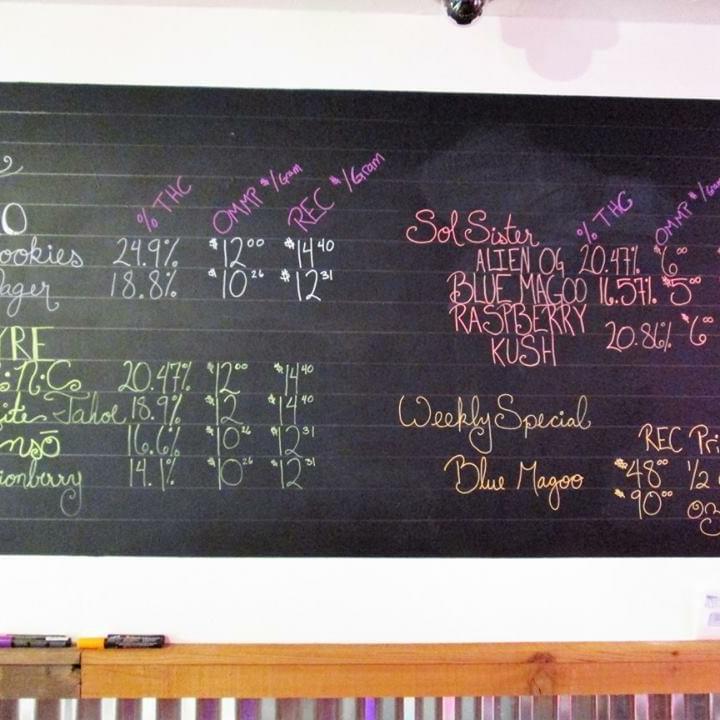 % THC OMMP $/Gram REC $/Gram
O
ookies 24.9% $12⁰⁰ $14⁴⁰
ager 18.8% $10²⁶ $12³¹
YRE
20.47% $12⁰⁰ $14⁴⁰
ite Tahoe 18.9% $12 $14⁴⁰
nsō 16.6% $10²⁶ $12³¹
ionberry 14.1% $10²⁶ $12³¹
% THC OMMP $/Gram
Sol Sister
ALIEN OG 20.47% $6⁰⁰
BLUE MAGOO 16.57% $5⁰⁰
RASPBERRY
KUSH 20.86% $6⁰⁰
Weekly Special
REC Pri
Blue Magoo $48⁰⁰ 1/2
$90⁰⁰ oz